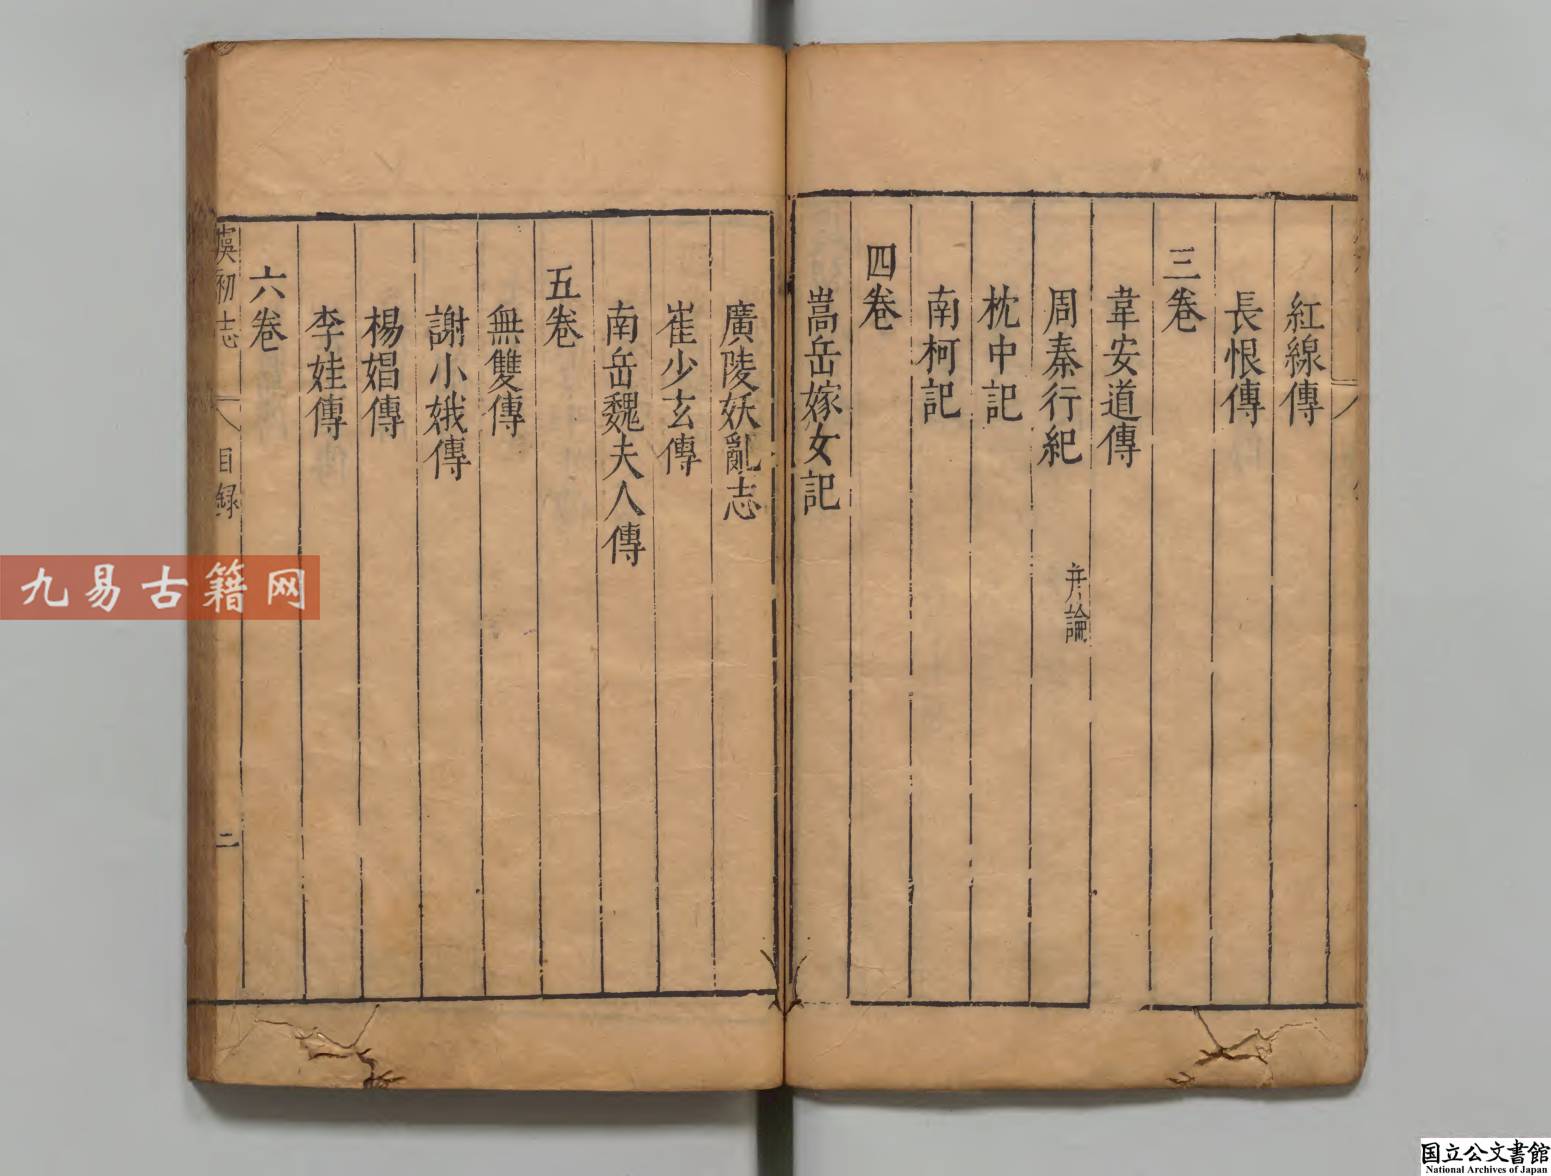 紅線傳
長恨傳
三卷
韋安道傳
周秦行紀 并論
枕中記
南柯記
四卷
嵩岳嫁女記
廣陵妖亂志
崔少玄傳
南岳魏夫人傳
五卷
無雙傳
謝小娥傳
楊娼傳
李娃傳
六卷
虞初志 目録 二
九易古籍网
国立公文書館
National Archives of Japan